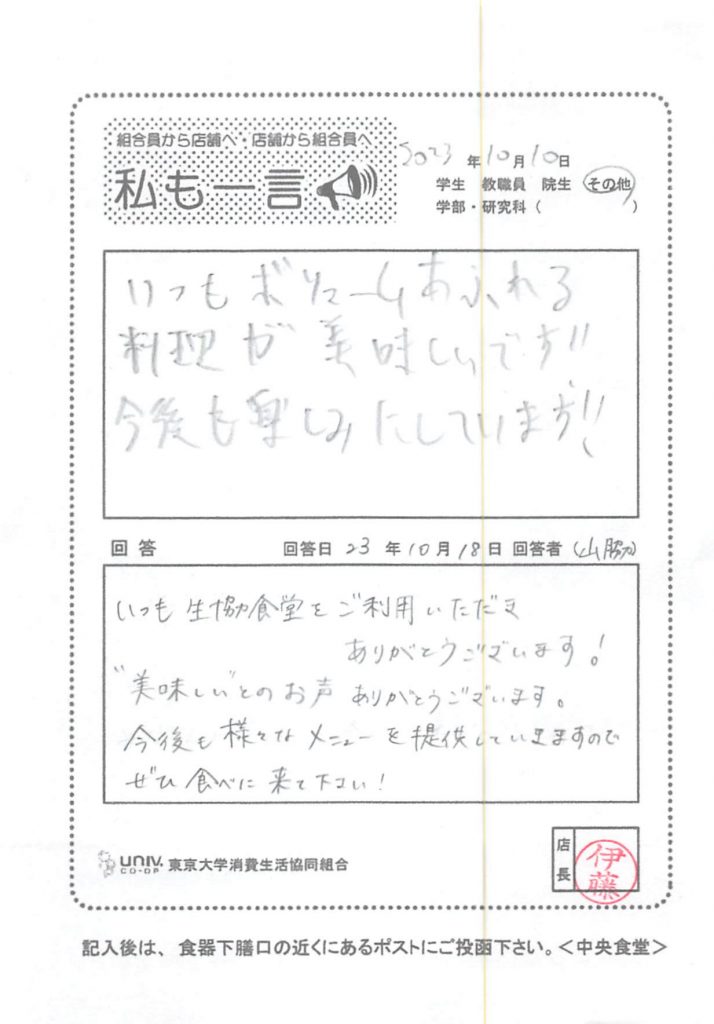 組合員から店舗へ・店舗から組合員へ
私も一言
2023年10月10日
学生 教職員 院生 その他
学部・研究科( )
いつもボリュームあふれる
料理が美味しいです!!
今後も楽しみにしています!!
回答 回答日 23年10月18日 回答者(山脇)
いつも生協食堂をご利用いただき
ありがとうございます!
"美味しい"とのお声ありがとうございます。
今後も様々なメニューを提供していきますので
ぜひ食べに来て下さい!
UNIV. CO-OP 東京大学消費生活協同組合
店長 伊藤
記入後は、食器下膳口の近くにあるポストにご投函下さい。<中央食堂>